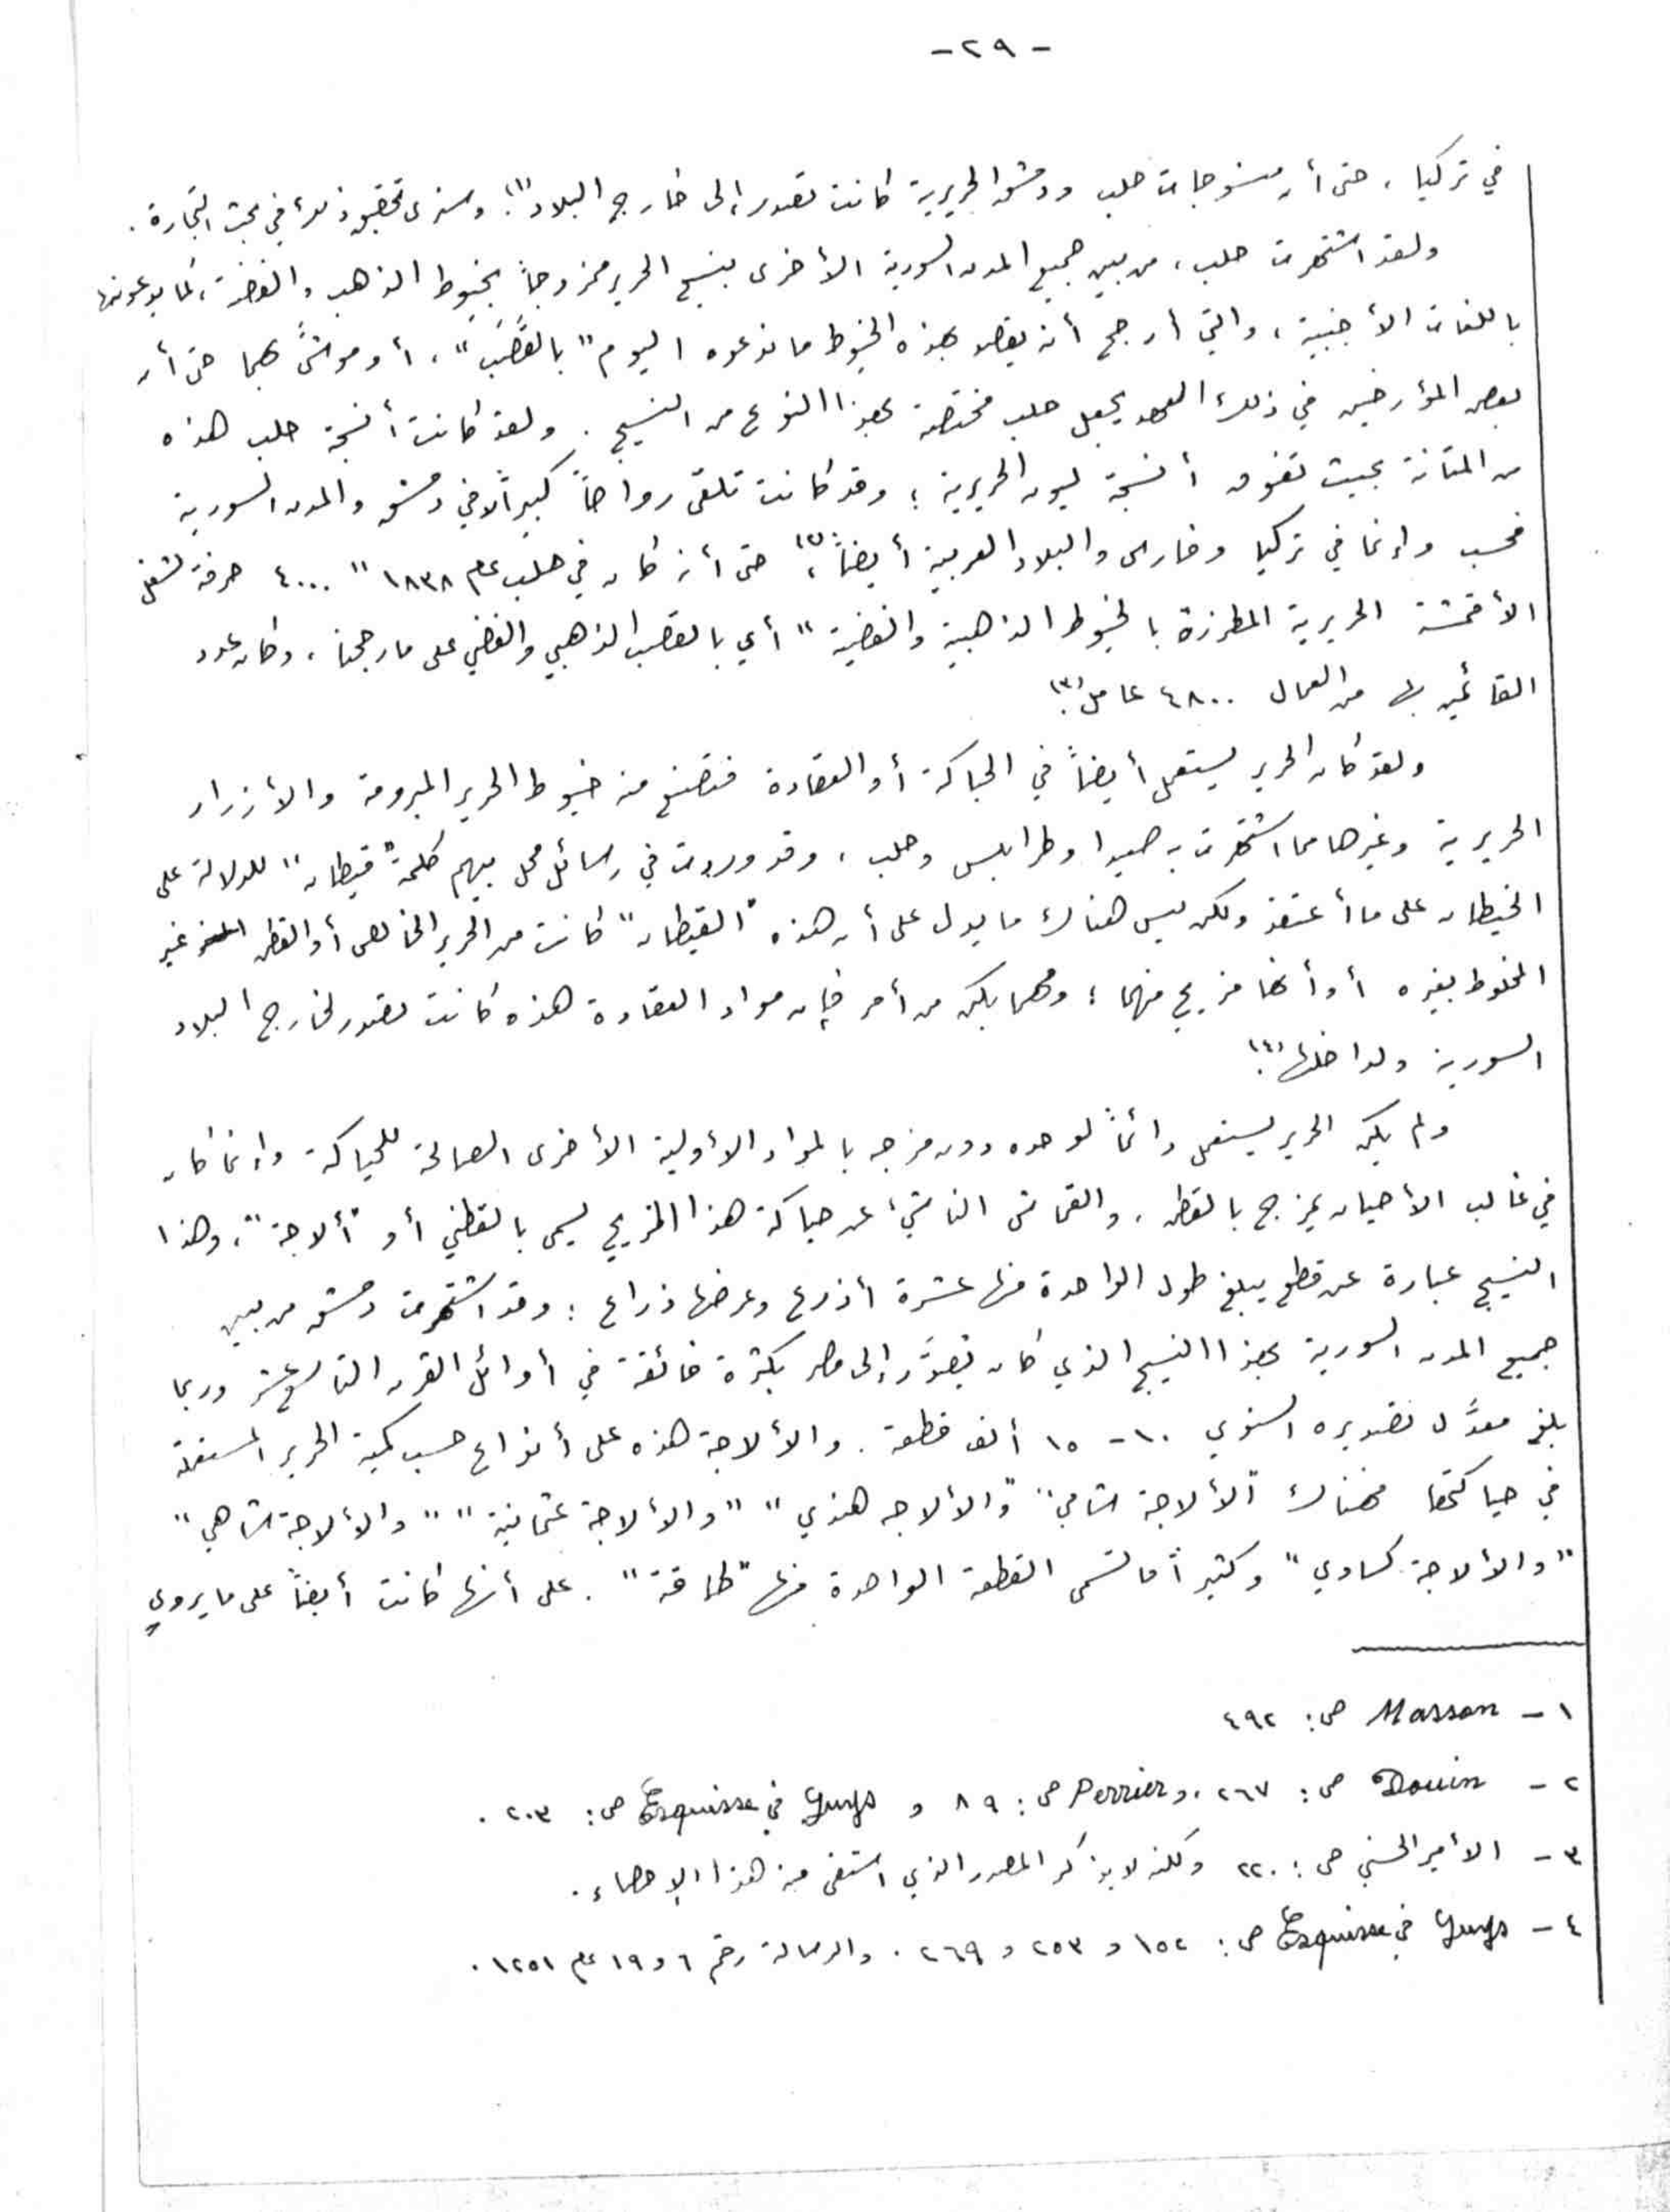 - ٢٩ -
في تركيا، حتى أن منسوجات حلب ودمشق الحريرية كانت تصدر إلى خارج البلاد(١)؛ وسنرى تحقيق ذلك في بحث التجارة.
ولقد اشتهرت حلب، من بين جميع المدن السورية الأخرى بنسيج الحرير ممزوجاً بخيوط الذهب والفضة، كما يدعونها
باللغات الأجنبية، والتي أرجح أنه يقصد بهذه الخيوط ما ندعوه اليوم "بالقَصَب"، أو موشىً بهما حتى أن
بعض المؤرخين في ذلك العهد يجعل حلب مختصة بهذا النوع من النسيج. ولقد كانت أنسجة حلب هذه
من المتانة بحيث تفوق أنسجة ليون الحريرية؛ وقد كانت تلقى رواجاً كبيراً لا في دمشق والمدن السورية
فحسب وإنما في تركيا وفارس والبلاد العربية أيضاً(٢)؛ حتى أنه كان في حلب عام ١٨٣٨ " ٤٠٠٠ حرفة تشغل
الأقمشة الحريرية المطرزة بالخيوط الذهبية والفضية" أي بالقصب الذهبي والفضي على ما رجحنا، وكان عدد
القائمين بها من العمال ٤٨٠٠ عامل(٣).
ولقد كان الحرير يستعمل أيضاً في الحباكة أو العقادة فتصنع منه خيوط الحرير المبرومة والأزرار
الحريرية وغيرها مما اشتهرت به صيدا وطرابلس وحلب، وقد وردت في رسائل محل بيهم كلمة "قيطان" للدلالة على
الخيطان على ما أعتقد ولكن ليس هناك ما يدل على أن هذه "القيطان" كانت من الحرير الخالص أو القطن غير
المخلوط بغيره أو أنها مزيج منهما؛ ومهما يكن من أمر فإن مواد العقادة هذه كانت تصدر لخارج البلاد
السورية ولداخلها(٤).
ولم يكن الحرير يستعمل دائماً لوحده دون مزجه بالمواد الأولية الأخرى الصالحة للحياكة وإنما كان
في غالب الأحيان يمزج بالقطن، والقماش الناشئ عن حياكة هذا المزيج يسمى بالقطني أو "ألاجة"، وهذا
النسيج عبارة عن قطع يبلغ طول الواحدة منها عشرة أذرع وعرضها ذراع؛ وقد اشتهرت دمشق من بين
جميع المدن السورية بهذا النسيج الذي كان يصدَّر إلى مصر بكثرة فائقة في أوائل القرن التاسع عشر وربما
بلغ معدَّل تصديره السنوي ١٠ - ١٥ ألف قطعة. والألاجة هذه على أنواع حسب كمية الحرير المستعملة
في حياكتها فهناك "الألاجة شامي" "والألاجه هندي" "والألاجة عثمانية" "والألاجة شاهي"
"والألاجة كساوي" وكثيراً ما تسمى القطعة الواحدة منها "طاقة". على أنها كانت أيضاً على ما يروي
١ - Masson ص: ٤٩٢
٢ - Douin ص: ٢٦٧، و Perrier ص: ٨٩ و Guys في Esquisse ص: ٢٠٣.
٣ - الأمير الحسني ص: ٢٢٠ ولكنه لا يذكر المصدر الذي استقى منه هذا الإحصاء.
٤ - Guys في Esquisse ص: ١٥٢ و ٢٥٣ و ٢٦٩. والرسالة رقم ٦ و ١٩ عام ١٢٥١.